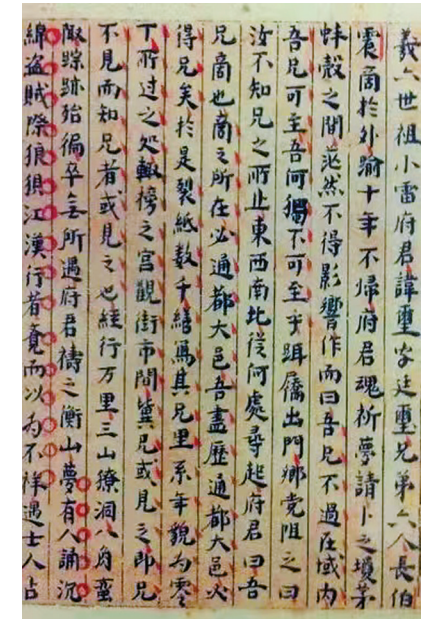 羲六世祖小雷府君諱璽字廷璽兄弟六人長伯
震商於外踰十年不歸府君魂祈夢請卜之瓊茅
蚌殼之間茫然不得影響作而曰吾兄不過在域內
吾兄可至吾何獨不可至乎躡屩出門鄉党阻之曰
汝不知兄之所止東西南北從何處尋起府君曰吾
兄商也商之所在必通都大邑吾盡歷通都大邑必
得兄矣於是裂紙數千繕寫其兄里系年貌为零
丁所过之处輙榜之宮觀街市間冀兄或見之即兄
不見而知兄者或見之也經行万里三山獠洞八角蠻
陬踪跡殆徧卒无所遇府君禱之衡山夢有人誦沉
綿盗賊際狼狽江漢行者覺而以为不祥遇士人占